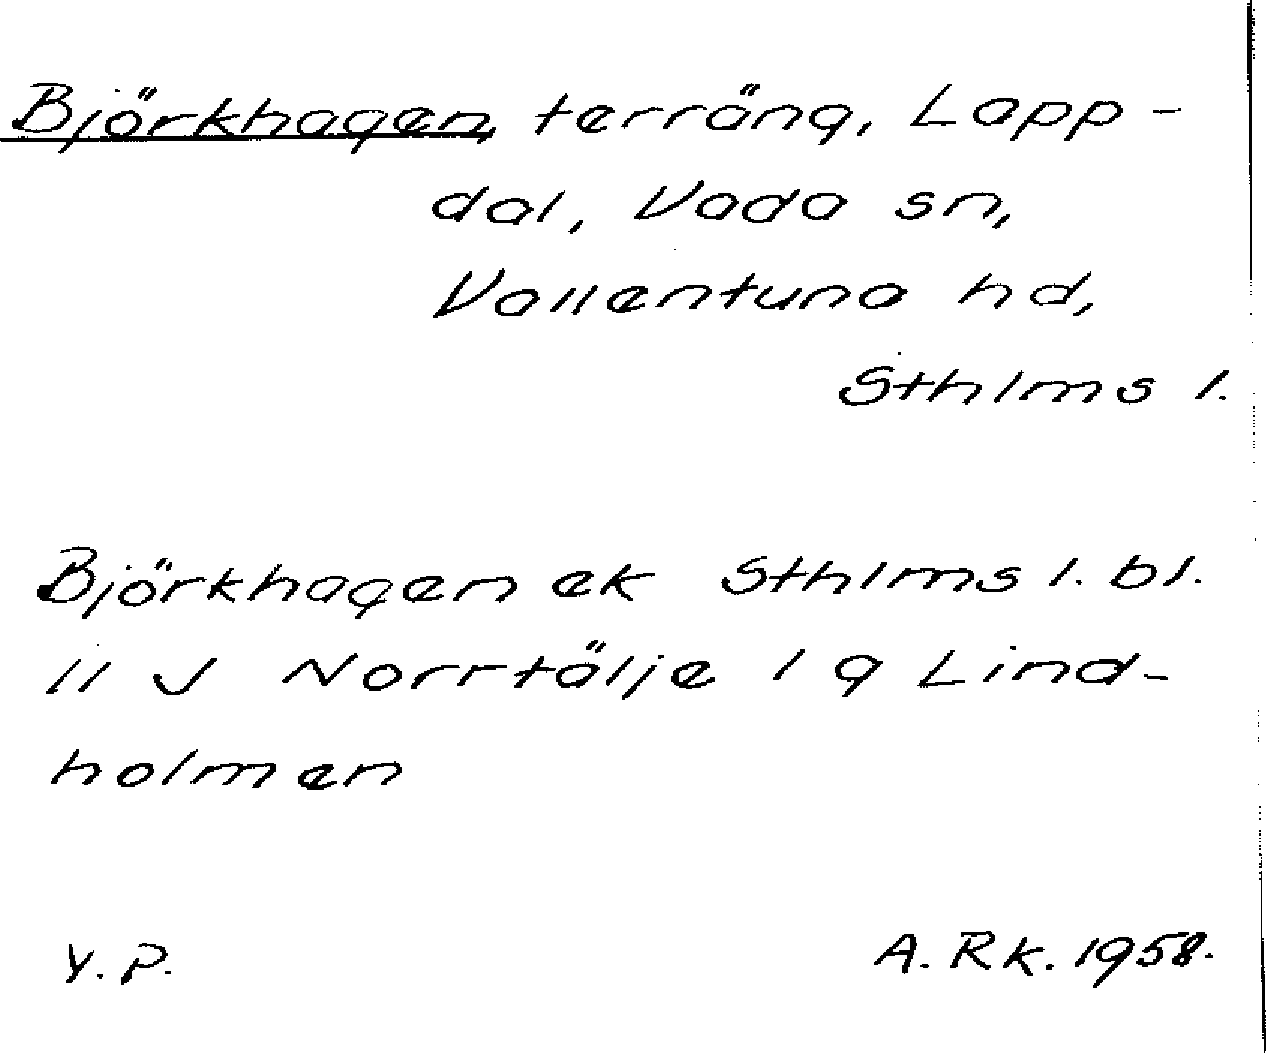 Björkhagen, terräng, Lapp-
dal, Vada sn,
Vallentuna hd,
Sthlms l.
Björkhagen ek Sthlms l. bl.
11 J Norrtälje 1 g Lind-
holmen
Y. P.
A. Rk. 1958.